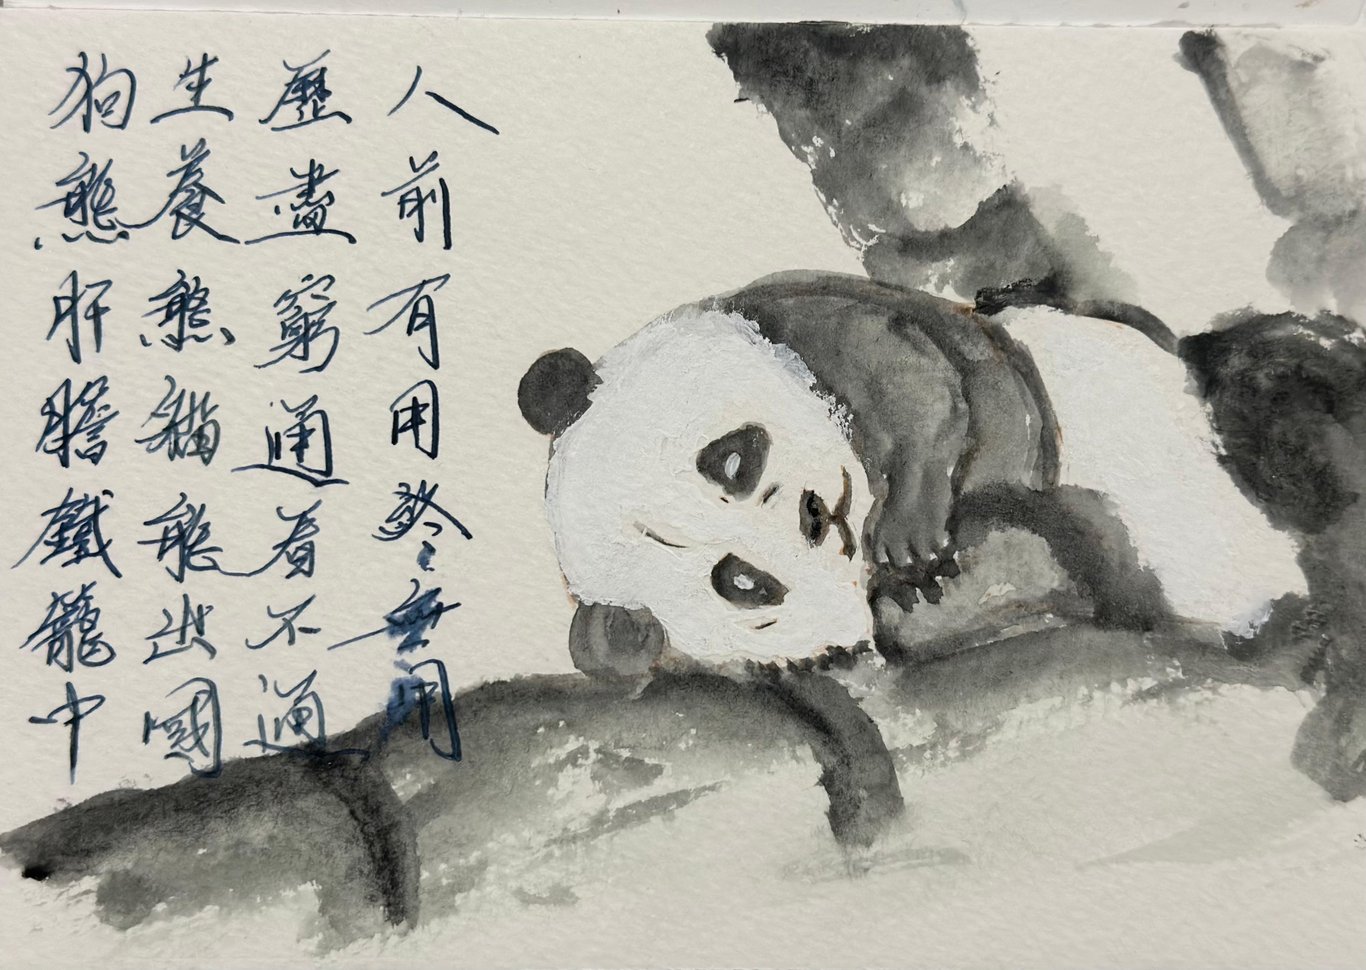 人前有用終無用
歷盡窮通看不通
生養熊貓能出國
狗熊肝膽鐵籠中